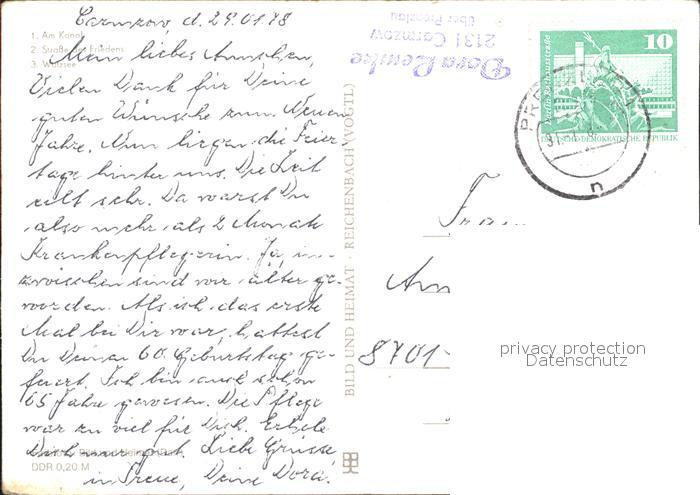 Carmzow, d. 29.01.78
1. Am Kanal
2. Straße des Friedens
3. Wolzsee
Mein liebes Annchen,
Vielen Dank für Deine
guten Wünsche zum Neuen
Jahre. Nun liegen die Feier-
tage hinter uns. Die Zeit
eilt sehr. Da warst Du
also mehr als 2 Monate
Krankenpflegerin. Ja, in-
zwischen sind wir älter ge-
worden. Als ich das erste
Mal bei Dir war, hattest
Du Deinen 60. Geburtstag ge-
feiert. Ich bin auch schon
65 Jahre gewesen. Die Pflege
war zu viel für Dich. Erhole
Dich nun gut. Liebe Grüsse
in Treue, Deine Dora.
DDR 0,20 M
BILD UND HEIMAT · REICHENBACH (VOGTL)
Dora Lemke
2131 Carmzow
über Prenzlau
10
DEUTSCHE DEMOKRATISCHE REPUBLIK
PRENZLAU
n
Frau
An
8701
privacy protection
Datenschutz